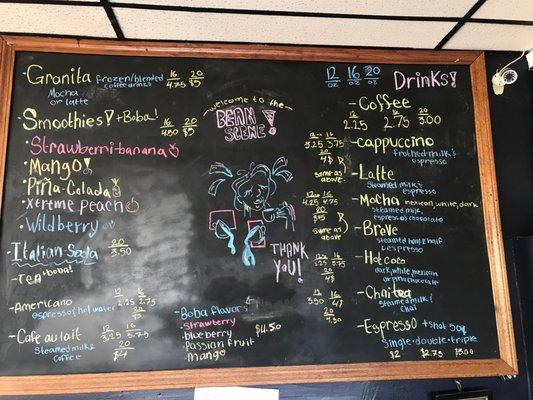 Granita frozen/blended 16 20
coffee drinks 4.75 $5
Mocha
or latte
Smoothies! + Boba! 16 20
4.50 $5
Strawberri-banana
Mango!
Piña-Colada
Xtreme Peach
Wildberry
Italian Soda 20
3.50
Tea + boba!
Americano 12 16
espresso & hot water 2.25 2.75
20
$3
Cafe au lait 12 16
3.25 3.75
steamed milk & 20
coffee $4
welcome to the
BEAN
SCENE!
THANK
YOU!
Boba flavors
strawberry
blueberry
Passion fruit
Mango
$4.50
12 16 20
oz oz oz
Drinks!
Coffee
12 16 20
2.25 2.75 3.00
cappuccino
frothed milk &
espresso
12 16
3.25 3.75
20
4$
same as
above
Latte
Steamed milk &
espresso
Mocha mexican, white, dark
steamed milk,
espresso & chocolate
12 16
4.25 4.75
20
$5
same as
above
Breve
steamed half & half
& espresso
Hot coco
dark, white, mexican
or piña chocolate
12 16
3.25 3.75
20
4$
Chai tea
steamed milk &
chai
12 16
3.50 4$
20
4.50
Espresso + shot 50¢
Single - double - triple
$2 $2.75 $3.00